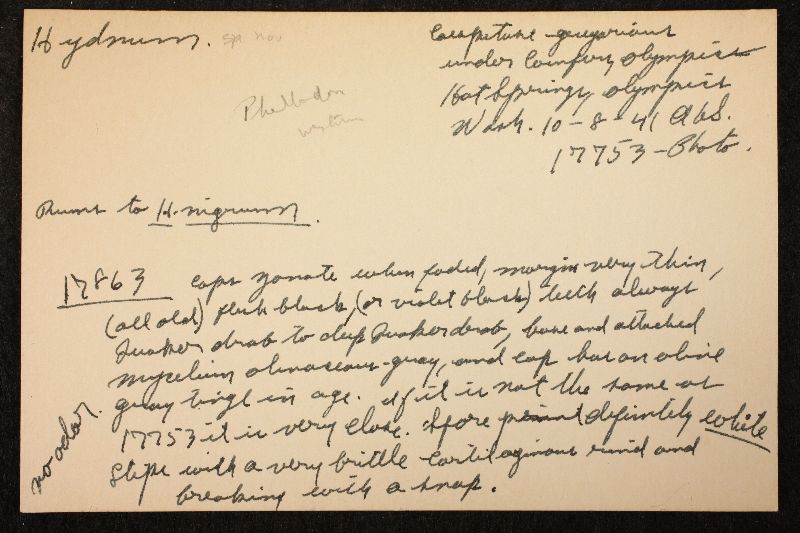 Hydnum. sp nov
Caespitose-gregarious
under Conifers, Olympic
Hot Springs, Olympics
Wash. 10-8-41 AHS.
17753-Photo.
Phellodon
Runs to H. nigrum.
17863 caps zonate when faded, margin very thin,
(all old) flesh black, (or violet black) teeth always
Quaker drab to deep Quaker drab, base and attached
mycelium olivaceous-gray, and cap has an olive
gray tinge in age. If it is not the same as
17753 it is very close. Spore print definitely white
stipe with a very brittle cartilaginous rind and
breaking with a snap.
no odor.